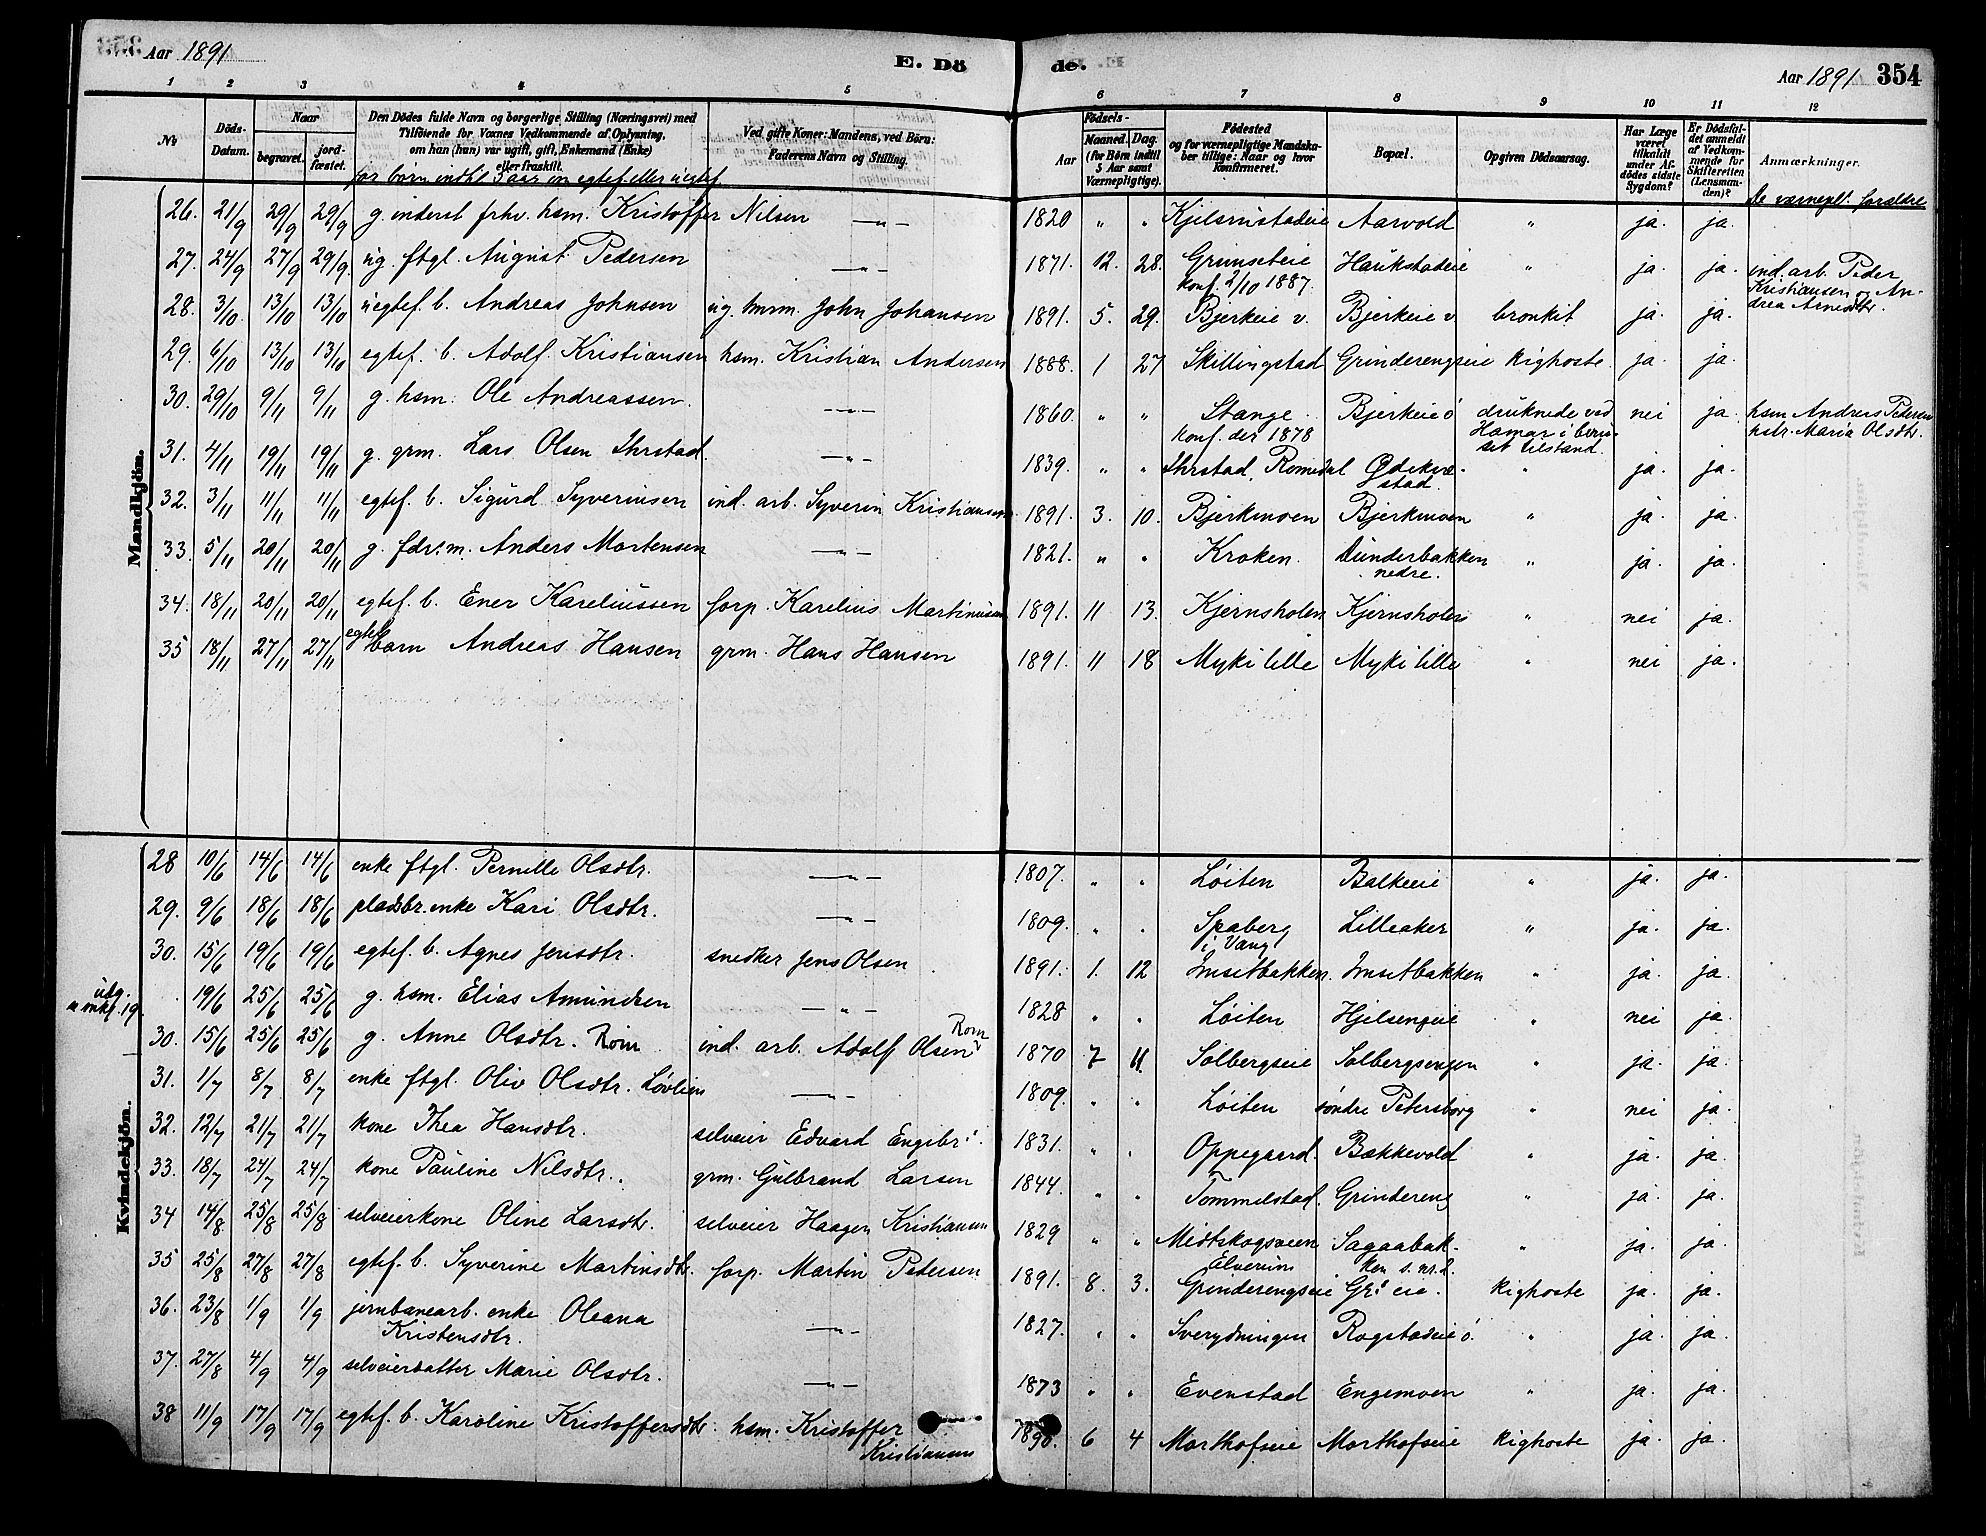 Aar 1891 E. Dö de. Aar 1891 354
1 2 3 4 5 6 7 8 9 10 11 12
No. Döds-Datum. Naar begravet. jordfæstet. Den Dödes fulde Navn og borgerlige Stilling (Næringsvei) med Tilföiende for Voxnes Vedkommende af Oplysning, om han (hun) var ugift, gift, Enkemand (Enke) eller fraskilt. Ved gifte Koner: Mandens, ved Börn: Faderens Navn og Stilling. Födsels- Aar Maaned. Dag. (for Börn indtil 5 Aar samt Værnepligtige). Födested og for værnepligtige Mandskaber tillige: Naar og hvor Konfirmeret. Bopæl. Opgiven Dödsaarsag. Har Læge været tilkaldt under Afdödes sidste Sygdom? Er Dödsfaldet anmeldt af Vedkommende for Skifteretten (Lensmanden)? Anmærkninger.
for børn indtil 5 aar om egtef. eller uegtef. De værnepl. forældre
Mandkjön.
26. 21/9 29/9 29/9 g. inderst frhv. hsm. Kristoffer Nilsen —"— 1820 " " Kjelsrustadeie Aarvold " ja. ja.
27. 24/9 27/9 29/9. ug. ftgl. August Pedersen —"— 1871. 12. 28. Grimseteie konf. 2/10 1887. Haukstadeie " ja ja. ind. arb. Peder Kristiansen og Andrea Arnesdtr.
28. 3/10 13/10 13/10 uegtef. b. Andreas Johnsen ug. tmm. John Johansen 1891. 5. 29. Bjerkeie v. Bjerkeie v bronkit ja. ja.
29. 6/10 13/10 13/10 egtef. b. Adolf Kristiansen hsm. Kristian Andersen 1888. 1 27 Skillingstad Grinderengseie kighoste. ja. ja.
30. 29/10 9/11 9/11 g. hsm. Ole Andreassen. —"— 1860. " " Stange konf. der 1878 Bjerkeie ö druknede ved Hamar i beruset tilstand. nei ja. hsm Andreas Pedersen hstr. Maria Olsdtr.
31. 4/11 19/11 19/11 g. grm. Lars Olsen Ihrstad. —"— 1839. " " Ihrstad, Romedal Ødekvæstad. " ja. ja.
32. 3/11 11/11 11/11 egtef. b. Sigurd Syverinsen ind. arb. Syverin Kristiansen 1891. 3. 10. Bjerkmoen Bjerkmoen " ja. ja.
33. 5/11 20/11 20/11 g. fdr.m. Anders Mortensen —"— 1821. " " Kroken. Dunderbakken nedre. " ja. ja.
34. 18/11 20/11 20/11 egtef. b. Ener Kareliussen forp. Karelius Martinusen 1891. 11 13. Kjernsholen Kjernsholen " nei ja.
35 18/11 27/11 27/11 egtef. barn Andreas Hansen grm. Hans Hansen 1891. 11 18 Myki lille Myki lille " nei ja.
Kvindekjön.
28 10/6 14/6 14/6 enke ftgl. Pernille Olsdtr. —"— 1807. " " Løiten Balkeeie " ja. ja.
29. 9/6 18/6 18/6 pladsbr. enke Kari Olsdtr. —"— 1809. " " Spaberg i Vang Lilleaker " ja. ja.
30. 15/6 19/6 19/6 egtef. b. Agnes Jensdtr. snedker Jens Olsen 1891. 1. 12 Imsetbakken. Imsetbakken " ja. ja.
19/6 25/6 25/6 g. hsm. Elias Amundsen —"— 1828 " " Løiten Hjelsengeie " nei ja.
30. 15/6 25/6 25/6 g. Anne Olsdtr. Rom ind. arb. Adolf Olsen Rom 1870 7 11. Solbergseie Solbergsengen " ja. ja.
31. 1/7 8/7 8/7 enke ftgl. Oliv Olsdtr. Løvlien —"— 1809. " " Løiten söndre Petersborg " nei ja.
32. 12/7 21/7 21/7 kone Thea Hansdtr. selveier Edvard Engebr: 1831. " " Oppegaard. Bækkevold " ja. ja.
33. 18/7 24/7 24/7 kone Pauline Nilsdtr. grm. Gulbrand Larsen 1844. " " Tommelstad. Grindereng " ja. ja.
34 14/8 25/8 25/8 selveierkone Oline Larsdtr. selveier Haagen Kristiansen 1829 " " Midtskogsveen Elverum Sagaabakken s. nr. 2. " ja. ja.
35 25/8 27/8 27/8 egtef. b. Syverine Martinsdtr. forp. Martin Pedersen 1891. 8. 3. Grinderengseie Gr: eie. kighoste ja. ja.
36. 23/8 1/9 1/9 jernbanearb. enke Oleana Kristensdtr. —"— 1827. " " Sverydningen Rogstadeie ö. " ja ja.
37. 27/8 4/9 4/9 selveierdatter Marie Olsdtr. —"— 1873 " " Evenstad Engemoen " ja. ja.
38 11/9 17/9 17/9 egtef. b. Karoline Kristoffersdtr. hsm. Kristoffer Kristiansen 1890. 6 4 Morthofseie Morthofseie kighoste ja. ja.